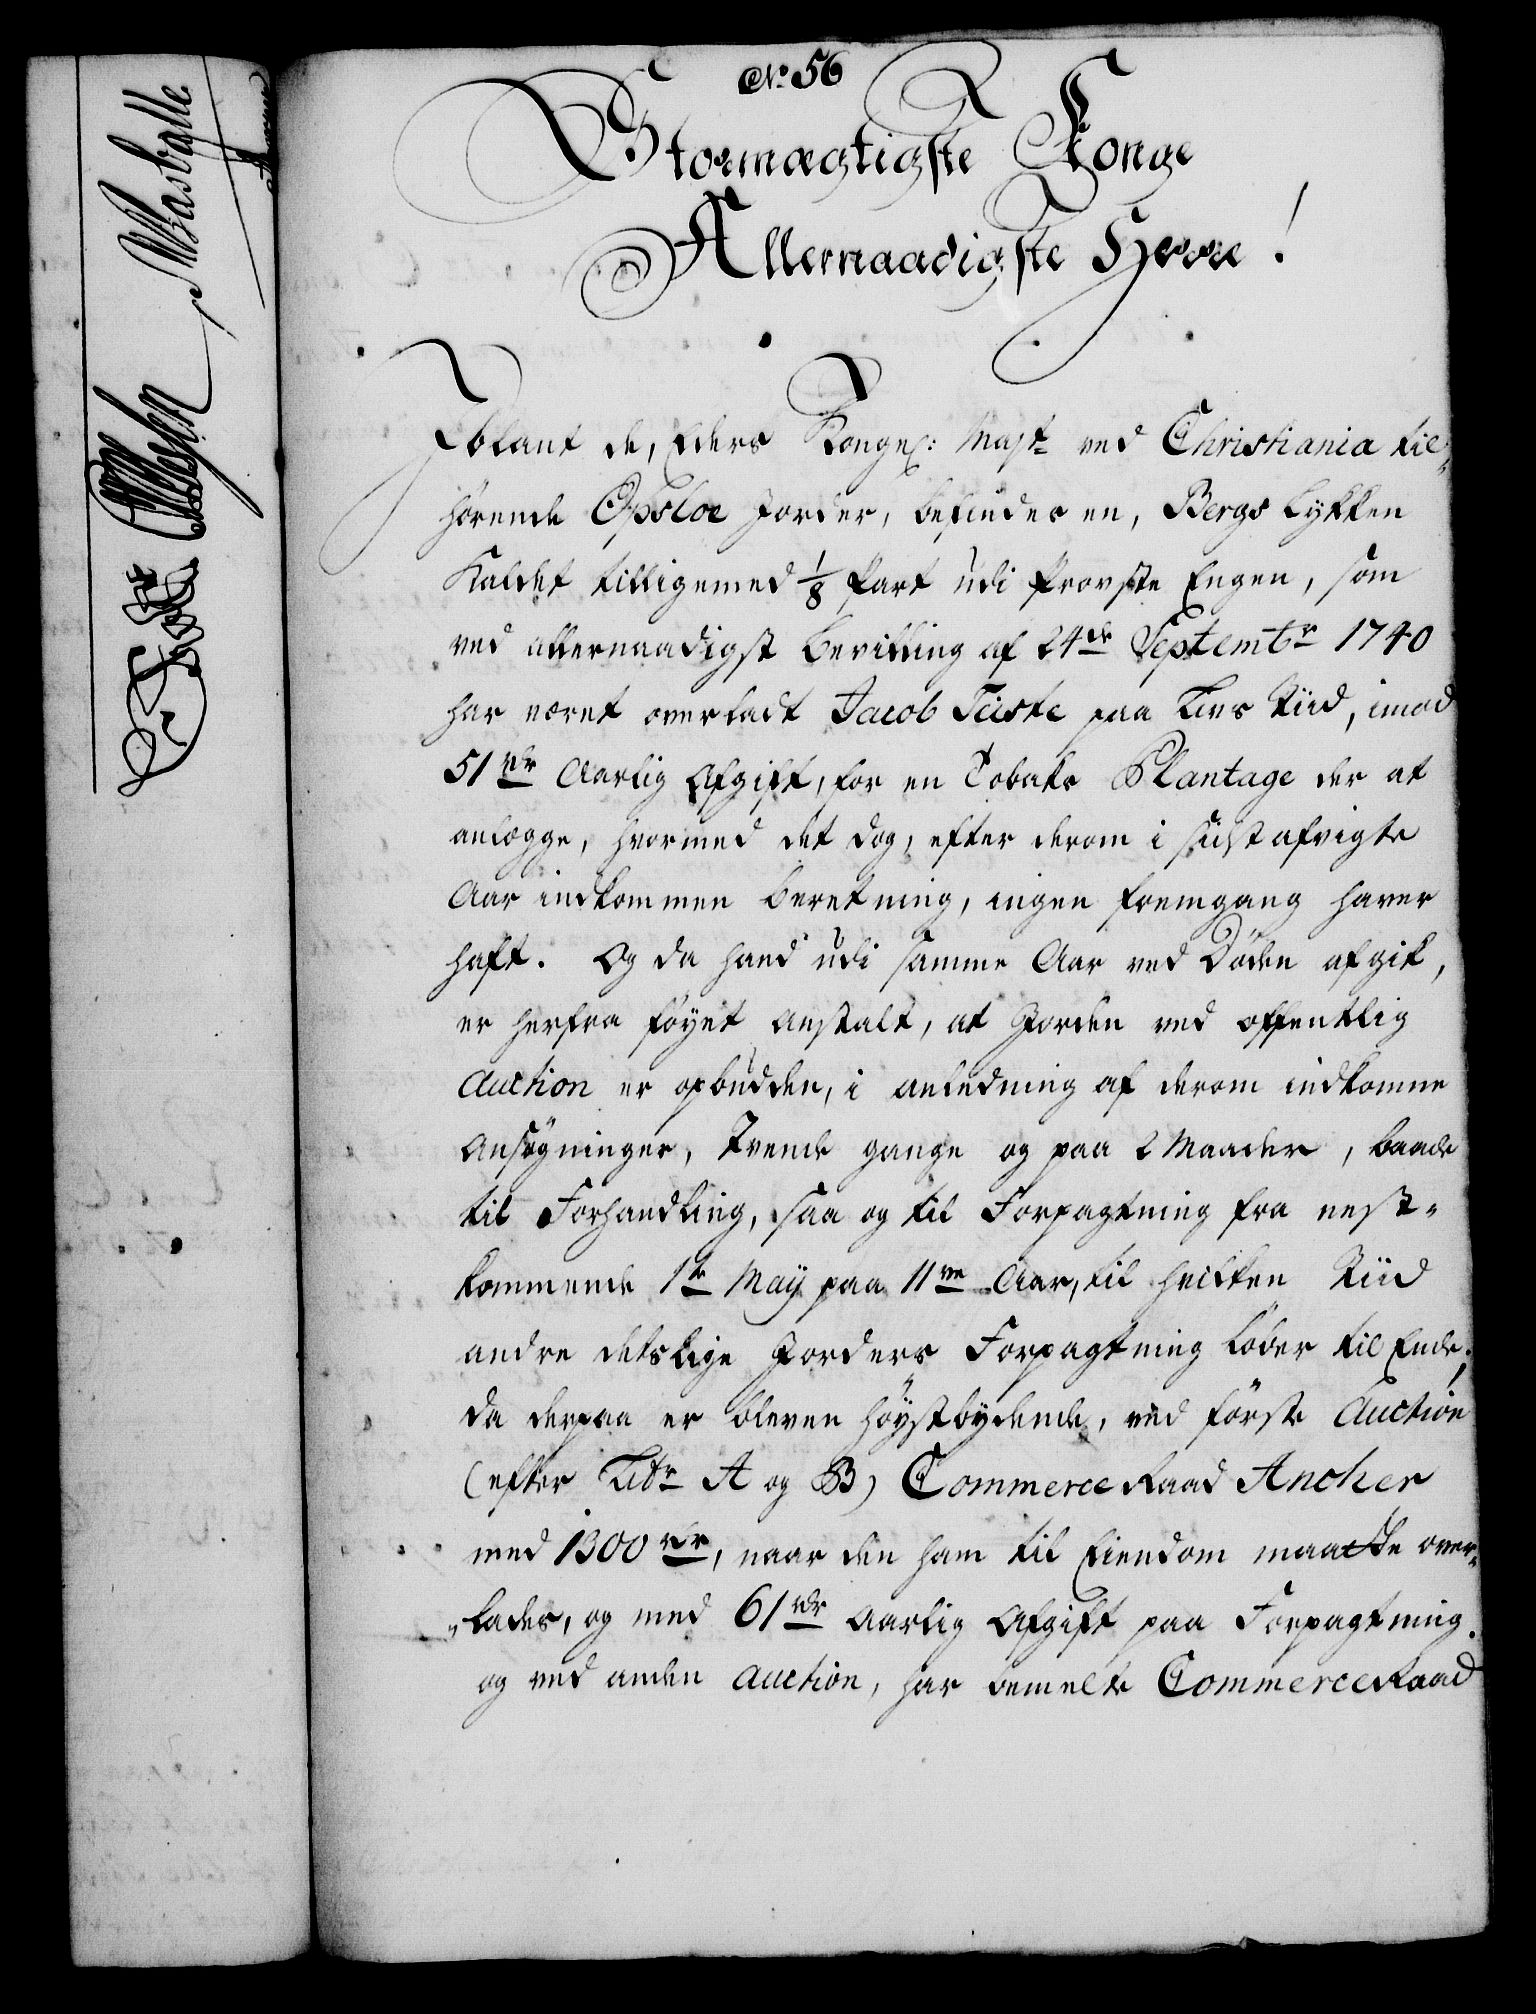 No 56
Stormægtigste Konge
Allernaadigste Herre!
Iblant de, Eders Kongel: Majt ved Christiania til„
hörende Opsloe Jorder, befindes en, Bergs Lykken
Kaldet tilligemed 1/8 Part udi Provste Engen, som
ved allernaadigst Bevilling af 24de Septembr 1740
har været overladt Jacob Teiste paa Livs Tiid, imod
51 rdr Aarlig Afgift, for en Tobaks Plantage der at
anlægge, hvormed det dog, efter derom i sidstafvigte
Aar indkommen Beretning, ingen fremgang haver
haft. Og da hand udi samme Aar ved Döden afgik,
er herfra föyet anstalt, at Jorden ved offentlig
Auction er opbudden, i anledning af derom indkomne
Ansögninger, Tvende gange og paa 2 Maader, baade
til Forhandling, saa og til Forpagtning fra nest„
kommende 1te Maÿ paa 11ve Aar, til hvilken Tiid
andre deslige Jorders Forpagtning löber til Ende,
da derpaa er bleven höystbydende, ved förste Auction
(efter Litr A og B) Commerce Raad Ancher
med 1300 rdr, naar den ham til Eiendom maatte over„
„lades, og med 61 rdr Aarlig Afgift paa Forpagtning.
og ved anden Auction, har bemelte Commerce Raad